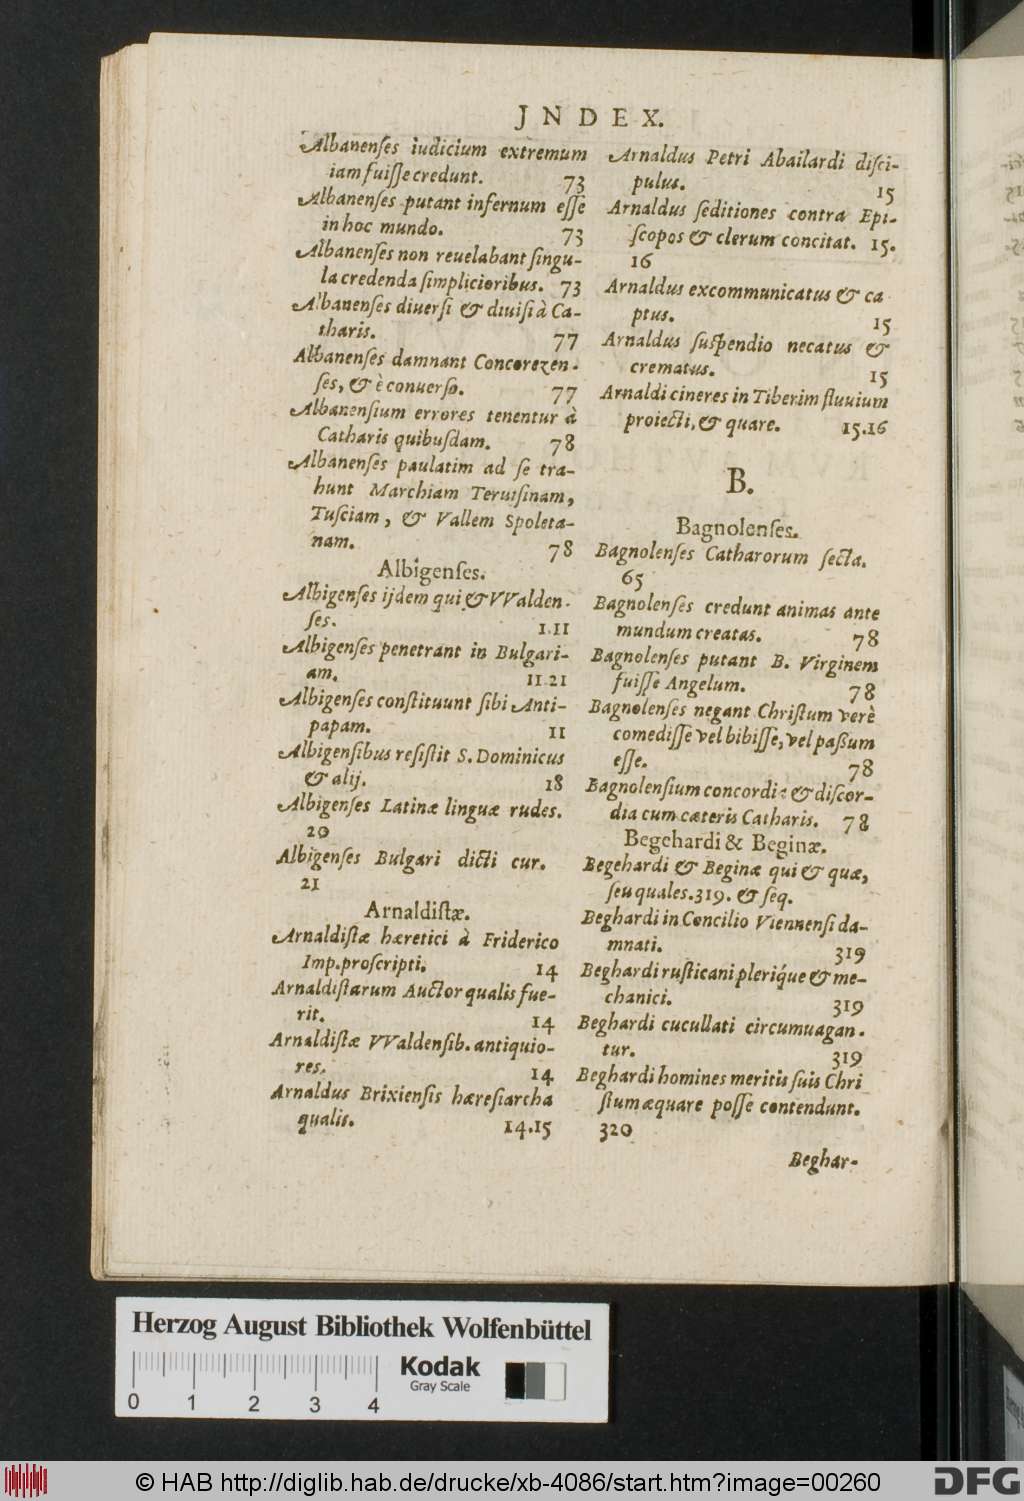 JNDEX.
Albanenſes iudicium extremum
iam fuiſſe credunt. 73
Albanenſes putant infernum eſſe
in hoc mundo. 73
Albanenſes non reuelabant ſingu-
la credenda ſimplicioribus. 73
Albanenſes diuerſi & diuiſi à Ca-
tharis. 77
Albanenſes damnant Concorezen-
ſes, & è conuerſo. 77
Albanenſium errores tenentur à
Catharis quibuſdam. 78
Albanenſes paulatim ad ſe tra-
hunt Marchiam Teruiſinam,
Tuſciam, & Vallem Spoleta-
nam. 78
Albigenſes.
Albigenſes ijdem qui & VValden-
ſes. 1.11
Albigenſes penetrant in Bulgari-
am. 11.21
Albigenſes conſtituunt ſibi Anti-
papam. 11
Albigenſibus reſiſtit S. Dominicus
& alij. 18
Albigenſes Latinæ linguæ rudes.
20
Albigenſes Bulgari dicti cur.
21
Arnaldiſtæ.
Arnaldiſtæ hæretici à Friderico
Imp. proſcripti. 14
Arnaldiſtarum Auctor qualis fue-
rit. 14
Arnaldiſtæ VValdenſib. antiquio-
res. 14
Arnaldus Brixienſis hæreſiarcha
qualis. 14.15
Arnaldus Petri Abailardi diſci-
pulus. 15
Arnaldus ſeditiones contra Epi-
ſcopos & clerum concitat. 15.
16
Arnaldus excommunicatus & ca
ptus. 15
Arnaldus ſuſpendio necatus &
crematus. 15
Arnaldi cineres in Tiberim fluuium
proiecti, & quare. 15.16
B.
Bagnolenſes.
Bagnolenſes Catharorum ſecta.
65
Bagnolenſes credunt animas ante
mundum creatas. 78
Bagnolenſes putant B. Virginem
fuiſſe Angelum. 78
Bagnolenſes negant Chriſtum verè
comediſſe vel bibiſſe, vel paßum
eſſe. 78
Bagnolenſium concordia & diſcor-
dia cum cæteris Catharis. 78
Begehardi & Beginæ.
Begehardi & Beginæ qui & quæ,
ſeu quales. 319. & ſeq.
Beghardi in Concilio Viennenſi da-
mnati. 319
Beghardi ruſticani pleriq́ue & me-
chanici. 319
Beghardi cucullati circumuagan-
tur. 319
Beghardi homines meritis ſuis Chri
ſtum æquare poſſe contendunt.
320
Beghar-
Herzog August Bibliothek Wolfenbüttel
Kodak
Gray Scale
0 1 2 3 4
© HAB http://diglib.hab.de/drucke/xb-4086/start.htm?image=00260
DFG